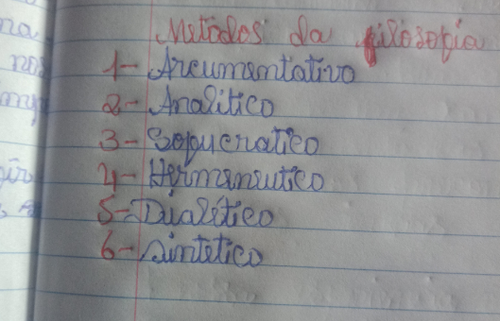 na-
nos
Metodos da filosofia
1- Arcumentativo
2- Analitico
3- Sopycratico
4- Hermeneutico
5- Dialético
6- Sintetico